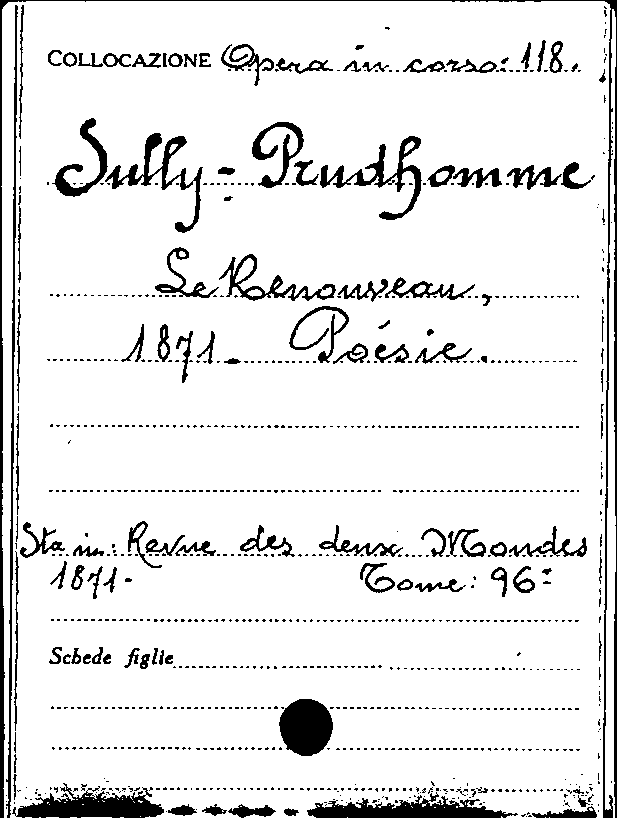 COLLOCAZIONE Opera in corso: 118.
Sully-Prudhomme
Le Renouveau,
1871. Poésie.
Sta in: Revue des deux Mondes
1871- Tome: 96°
Schede figlie